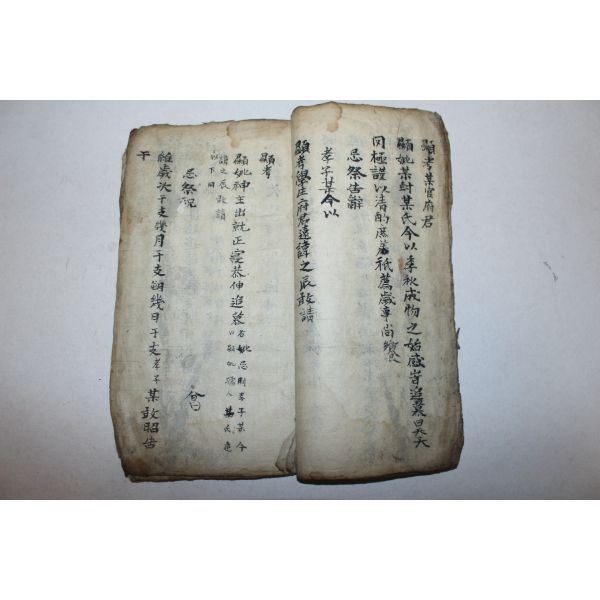 顯考某官府君
顯妣某封某氏今以季秋成物之始感時追慕昊天
罔極謹以清酌庶羞祗薦歲事尙饗
忌祭告辭
孝子某今以
顯考學生府君遠諱之辰敢請
顯考
顯妣神主出就正寢恭伸追慕
若妣忌則孝子某今
以顯妣孺人某氏遠
諱之辰敢請
以下同
忌祭祝
維歲次干支幾月干支朔幾日干支孝子某敢昭告
于